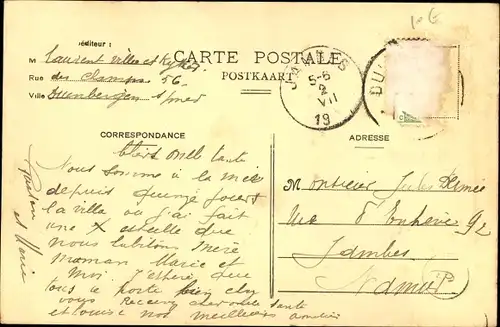 10 €
éditeur :
M Laurent
Rue des 56
Ville Duinbergen s/mer
CARTE POSTALE
POSTKAART
JAMBES
5-6
2
VII
19
DU
CORRESPONDANCE
ADRESSE
tante
Nous sommes à la mer
depuis quinze jours
la villa où j'ai fait
une X est celle que
nous habitons mère
maman Marie et
moi J'espère que
tous se porte bien chez
vous Recevez chère tante
et Louise nos meilleures amitiés
et Marie
Monsieur Jules
rue d' 92
Jambes
Namur